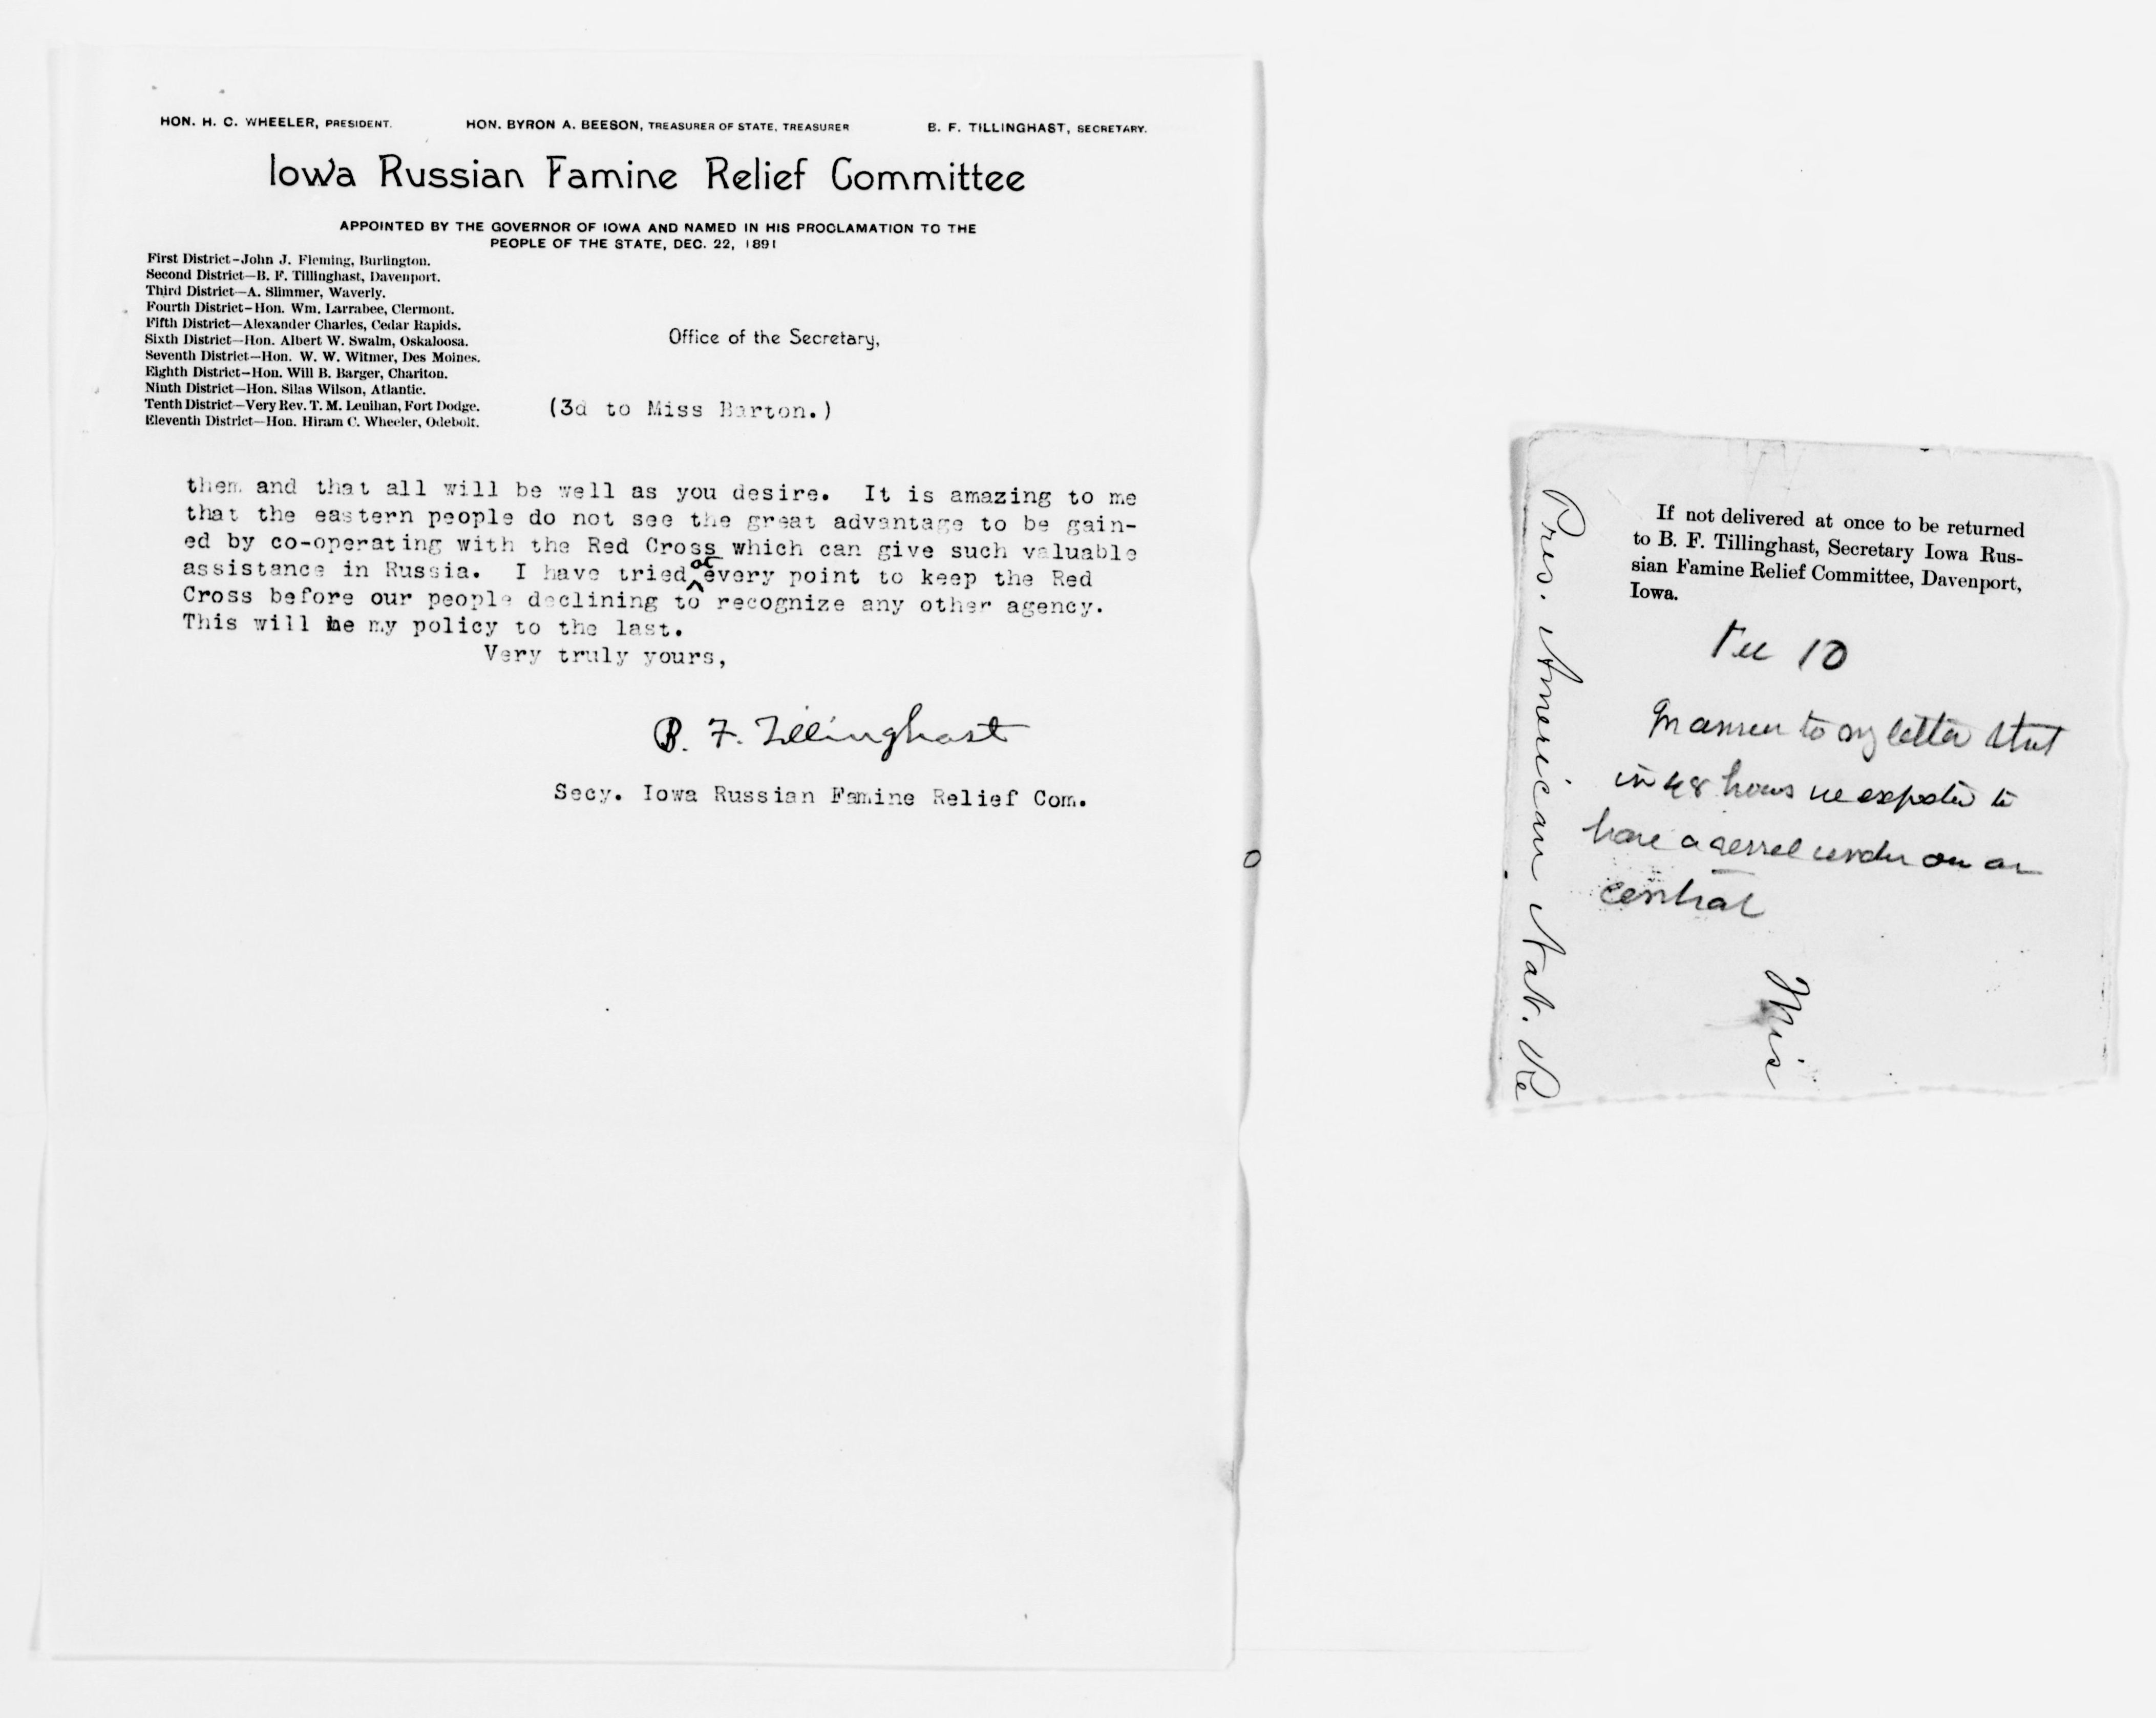 HON. H. C. WHEELER, PRESIDENT. HON. BYRON A. BEESON, TREASURER OF STATE, TREASURER B. F. TILLINGHAST, SECRETARY.
Iowa Russian Famine Relief Committee
APPOINTED BY THE GOVERNOR OF IOWA AND NAMED IN HIS PROCLAMATION TO THE
PEOPLE OF THE STATE, DEC. 22, 1891
First District-John J. Fleming, Burlington.
Second District—B. F. Tillinghast, Davenport.
Third District—A. Slimmer, Waverly.
Fourth District-Hon. Wm. Larrabee, Clermont.
Fifth District—Alexander Charles, Cedar Rapids.
Sixth District—Hon. Albert W. Swalm, Oskaloosa.
Seventh District—Hon. W. W. Witmer, Des Moines.
Eighth District—Hon. Will B. Barger, Chariton.
Ninth District—Hon. Silas Wilson, Atlantic.
Tenth District—Very Rev. T. M. Lenihan, Fort Dodge.
Eleventh District—Hon. Hiram C. Wheeler, Odebolt.
Office of the Secretary,
(3d to Miss Barton.)
them and that all will be well as you desire. It is amazing to me
that the eastern people do not see the great advantage to be gain-
ed by co-operating with the Red Cross which can give such valuable
assistance in Russia. I have tried at every point to keep the Red
Cross before our people declining to recognize any other agency.
This will be my policy to the last.
Very truly yours,
B. F. Tillinghast
Secy. Iowa Russian Famine Relief Com.
If not delivered at once to be returned
to B. F. Tillinghast, Secretary Iowa Rus-
sian Famine Relief Committee, Davenport,
Iowa.
10
In answer to my letter that
in 48 hours we expected to
have a vessel under our
central
Pres. American Nat. Re
Mis